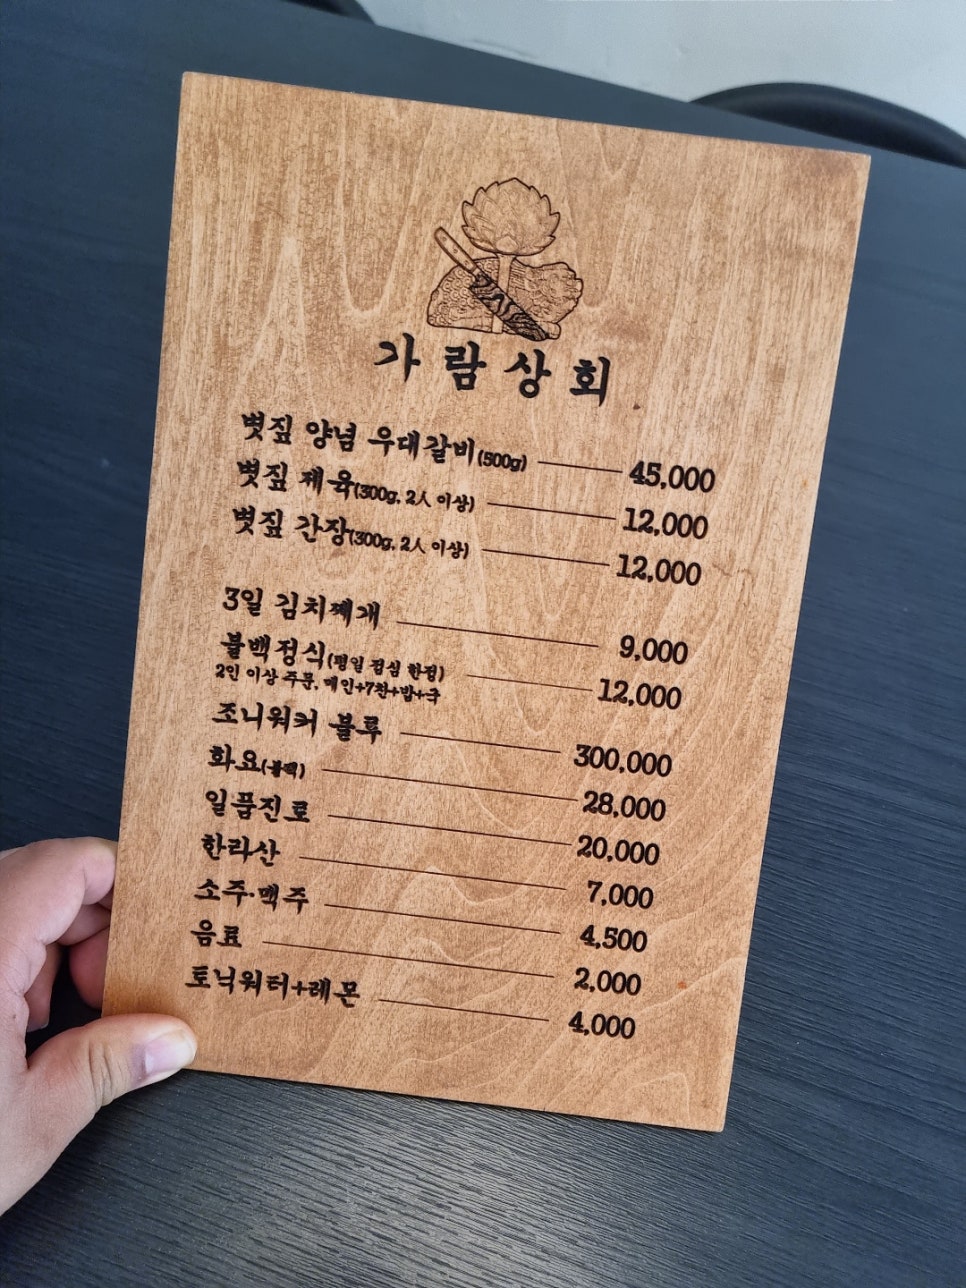 가람상회
볏짚 양념 우대갈비(500g) 45,000
볏짚 제육(300g, 2人 이상) 12,000
볏짚 간장(300g, 2人 이상) 12,000
3일 김치찌개 9,000
불백정식(평일 점심 한정) 12,000
2인 이상 주문, 메인+7찬+밥+국
조니워커 블루 300,000
화요(블랙) 28,000
일품진로 20,000
한라산 7,000
소주·맥주 4,500
음료 2,000
토닉워터+레몬 4,000